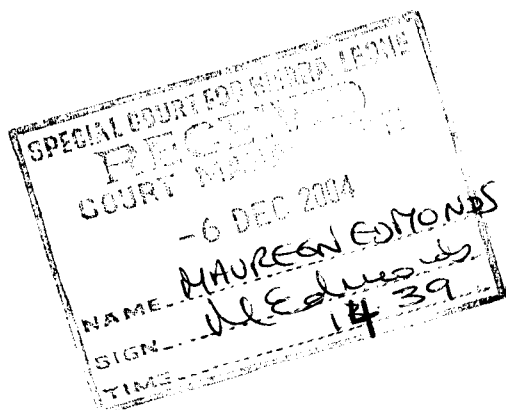 SPECIAL COURT FOR SIERRA LEONE
RECEIVED
COURT
-6 DEC 2004
NAME MAUREEN EDMONDS
SIGN MEdmonds
TIME 14 39